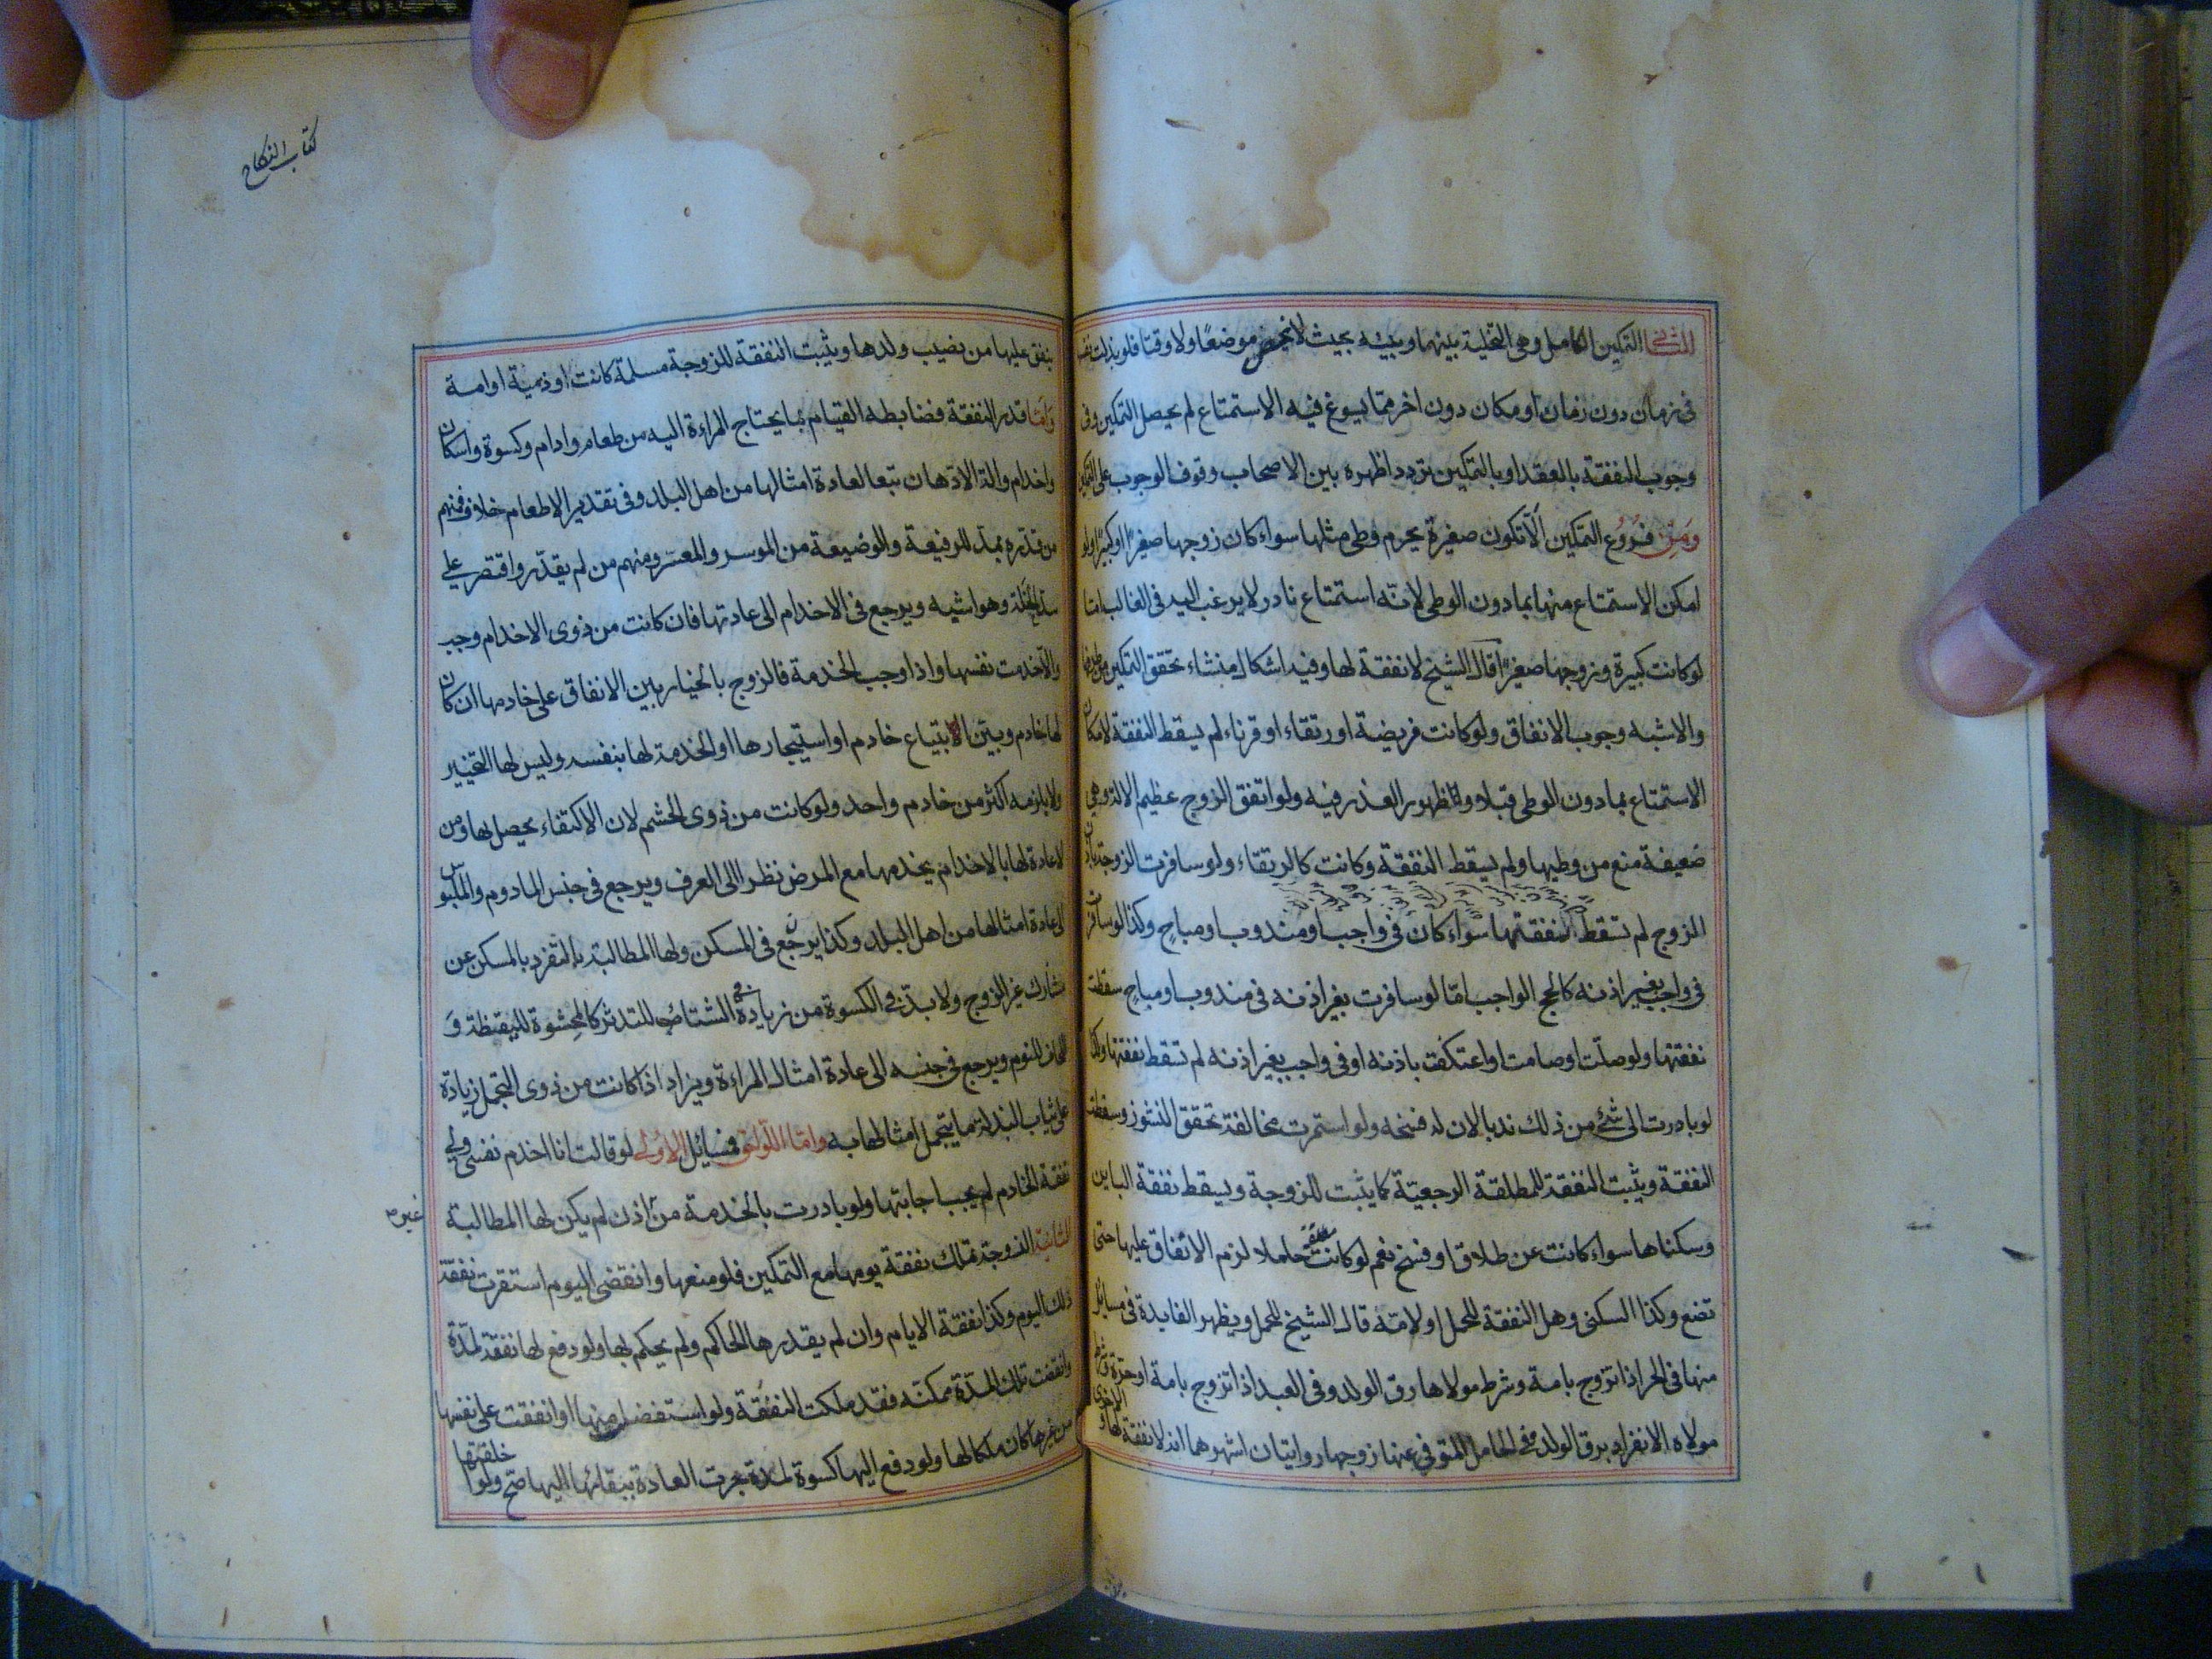 الثاني التمكين الكامل وهي التخلية بينها وبينه بحيث لا تخص موضعًا ولا وقتا فلو بذلت نفسها
فى زمان دون زمان او مكان دون اخر مما يسوغ فيه الاستمتاع لم يحصل التمكين وفى
وجوب النفقة بالعقد او بالتمكين تردد اظهره بين الاصحاب وقوف الوجوب على التمكين
وَمِن فُرُوُع التمكين اَلّا تكون صغيرة يحرم وطى مثلها سواء كان زوجها صغيرًا او كبيرًا ولو
امكن الاستمتاع منها بما دون الوطى لانّه استمتاع نادر لا يرغب اليه فى الغالب امّا
لو كانت كبيرة وزوجها صغيرًا قال الشيخ لا نفقة لها وفيه اشكال منشاء تحقق التمكين من طرفها
والاشبه وجوب الانفاق ولو كانت مريضة او رتقاء او قرناء لم يسقط النفقة لامكان
الاستمتاع بما دون الوطى قبلا وظهور العذر فيه ولو اتفق الزوج عظيم الالة وهى
ضعيفة منع من وطيها ولم يسقط النفقة وكانت كالرتقاء ولو سافرت الزوجة باذن
الزوج لم تسقط نفقتها سواء كان فى واجب او مندوب او مباح وكذا لو سافرت
فى واجب بغير اذنه كالحج الواجب امّا لو سافرت بغير اذنه فى مندوب او مباح سقطت
نفقتها ولو صلّت او صامت او اعتكفت باذنه او فى واجب بغير اذنه لم تسقط نفقتها وكذا
لو بادرت الى شئ من ذلك ندبا لان له فسخه ولو استمرت مخالفة تحقق النشوز وسقطت
النفقة ويثبت النفقة للمطلقة الرجعيّة كما يثبت للزوجة ويسقط نفقة الباين
وسكناها سواء كانت عن طلاق او فسخ نعم لو كانت حاملا لزم الانفاق عليها حتى
تضع وكذا السكنى وهل النفقة للحمل او لامّه قال الشيخ للحمل ويظهر الفايدة فى مسائل
منها فى الحر اذا تزوج بامة وشرط مولاها رق الولد وفى العبد اذا تزوج بامة او حرة وشرط
مولاه الانفراد برق الولد وفى الحامل المتوفى عنها زوجها روايتان اشهرهما انه لا نفقة لها و
الاخرى
كتاب النكاح
ينفق عليها من نصيب ولدها ويثبت النفقة للزوجة مسلمة كانت او ذمية او امة
وَامّا قدر النفقة فضابطه القيام بما يحتاج المراءة اليه من طعام وادام وكسوة واسكان
واخدام والة الادّهان تبعا لعادة امثالها من اهل البلد وفى تقدير الاطعام خلاف فمنهم
من قدّره بمدّ للرفيعة والوضيعة من الموسر والمعسر ومنهم من لم يقدّر واقتصر على
سدّ الخلة وهو اشبه ويرجع فى الاخدام الى عادتها فان كانت من ذوى الاخدام وجب
والّا خدمت نفسها واذا وجب الخدمة فالزوج بالخيار بين الانفاق على خادمها ان كان
لها خادم وبين الابتياع خادم او استيجارها او الخدمة لها بنفسه وليس لها التخيير
ولا يلزمه اكثر من خادم واحد ولو كانت من ذوى الحشم لان الاكتفاء يحصل بها ومن
لا عادة لها بالاخدام يخدمها مع المرض نظرا الى العرف ويرجع فى جنس المادوم والملبوس
الى عادة امثالها من اهل البلد وكذا يرجع فى المسكن ولها المطالبة بالتفرد بالمسكن عن
مشارك غير الزوج ولا بدّ فى الكسوة من زيادة فى الشتاء للتدثر كالمحشوة لليقظة وَ
اللحاف للنوم ويرجع فى جنسه الى عادة امثال المراءة ويزاد اذا كانت من ذوى التجمل زيادة
على ثياب البذلة بما يتجمل امثالها به وامّا اللواحق فمسائل الاولى لو قالت انا اخدم نفسى ولى
نفقة الخادم لم يجب اجابتها ولو بادرت بالخدمة من اذن لم يكن لها المطالبة
غير
الثانية الزوجة تملك نفقة يومها مع التمكين فلو منعها وانقضى اليوم استقرت نفقة
ذلك اليوم وكذا نفقة الايام وان لم يقدرها الحاكم ولم يحكم بها ولو دفع لها نفقة لمدّة
وانقضت تلك المدّة ممكنة فقد ملكت النفقة ولو استفضلت منها او انفقت على نفسها
من غيرها كان ملكا لها ولو دفع اليها كسوة لمدة جرت العادة ببقائها اليها صحّ ولو
اخلقتها